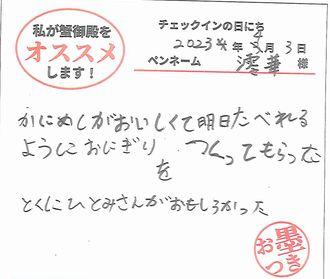 私が蟹御殿を
オススメ
します!
チェックインの日にち
2023年 4月 3日
ペンネーム 澪華 様
かにめしがおいしくて明日たべれる
ようにおにぎりをつくってもらった
とくにひとみさんがおもしろかった
墨つき